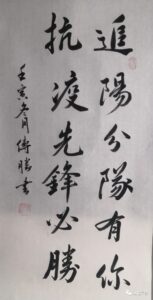 進陽分隊有你
抗疫先鋒必勝
壬寅冬月傅勝書